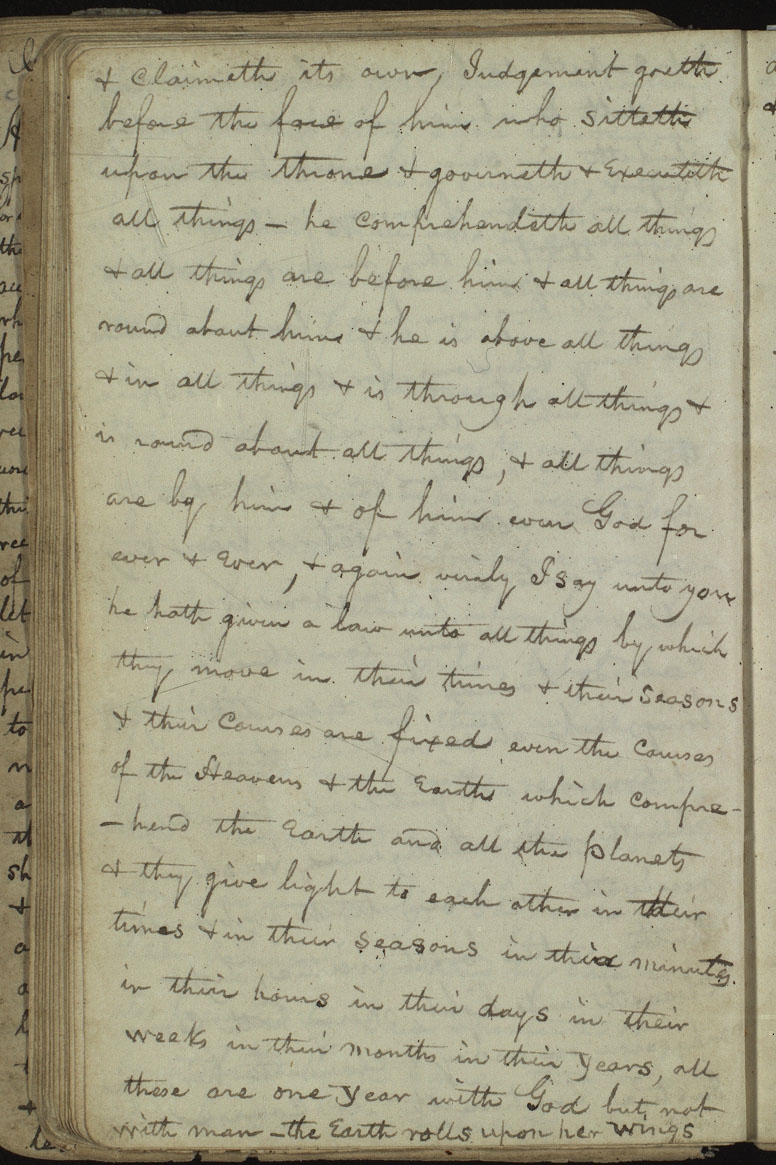 & Claimeth its own, Judgement goeth
before the face of him who sitteth
upon the throne & governeth & Executeth
all things — he comprehendeth all things
& all things are before him & all things are
round about him & he is above all things
& in all things & is through all things &
is round about all things, & all things
are by him & of him even God for
ever & Ever, & again verily I say unto you
he hath given a law unto all things by which
they move in their times & their Seasons
& their Courses are fixed even the Courses
of the Heavens & the Earths which Compre-
-hend the Earth and all the planets
& they give light to each other in their
times & in their Seasons in their minutes
in their hours in their days in their
weeks in their months in their years, all
these are one year with God but not
with man — the Earth rolls upon her wings